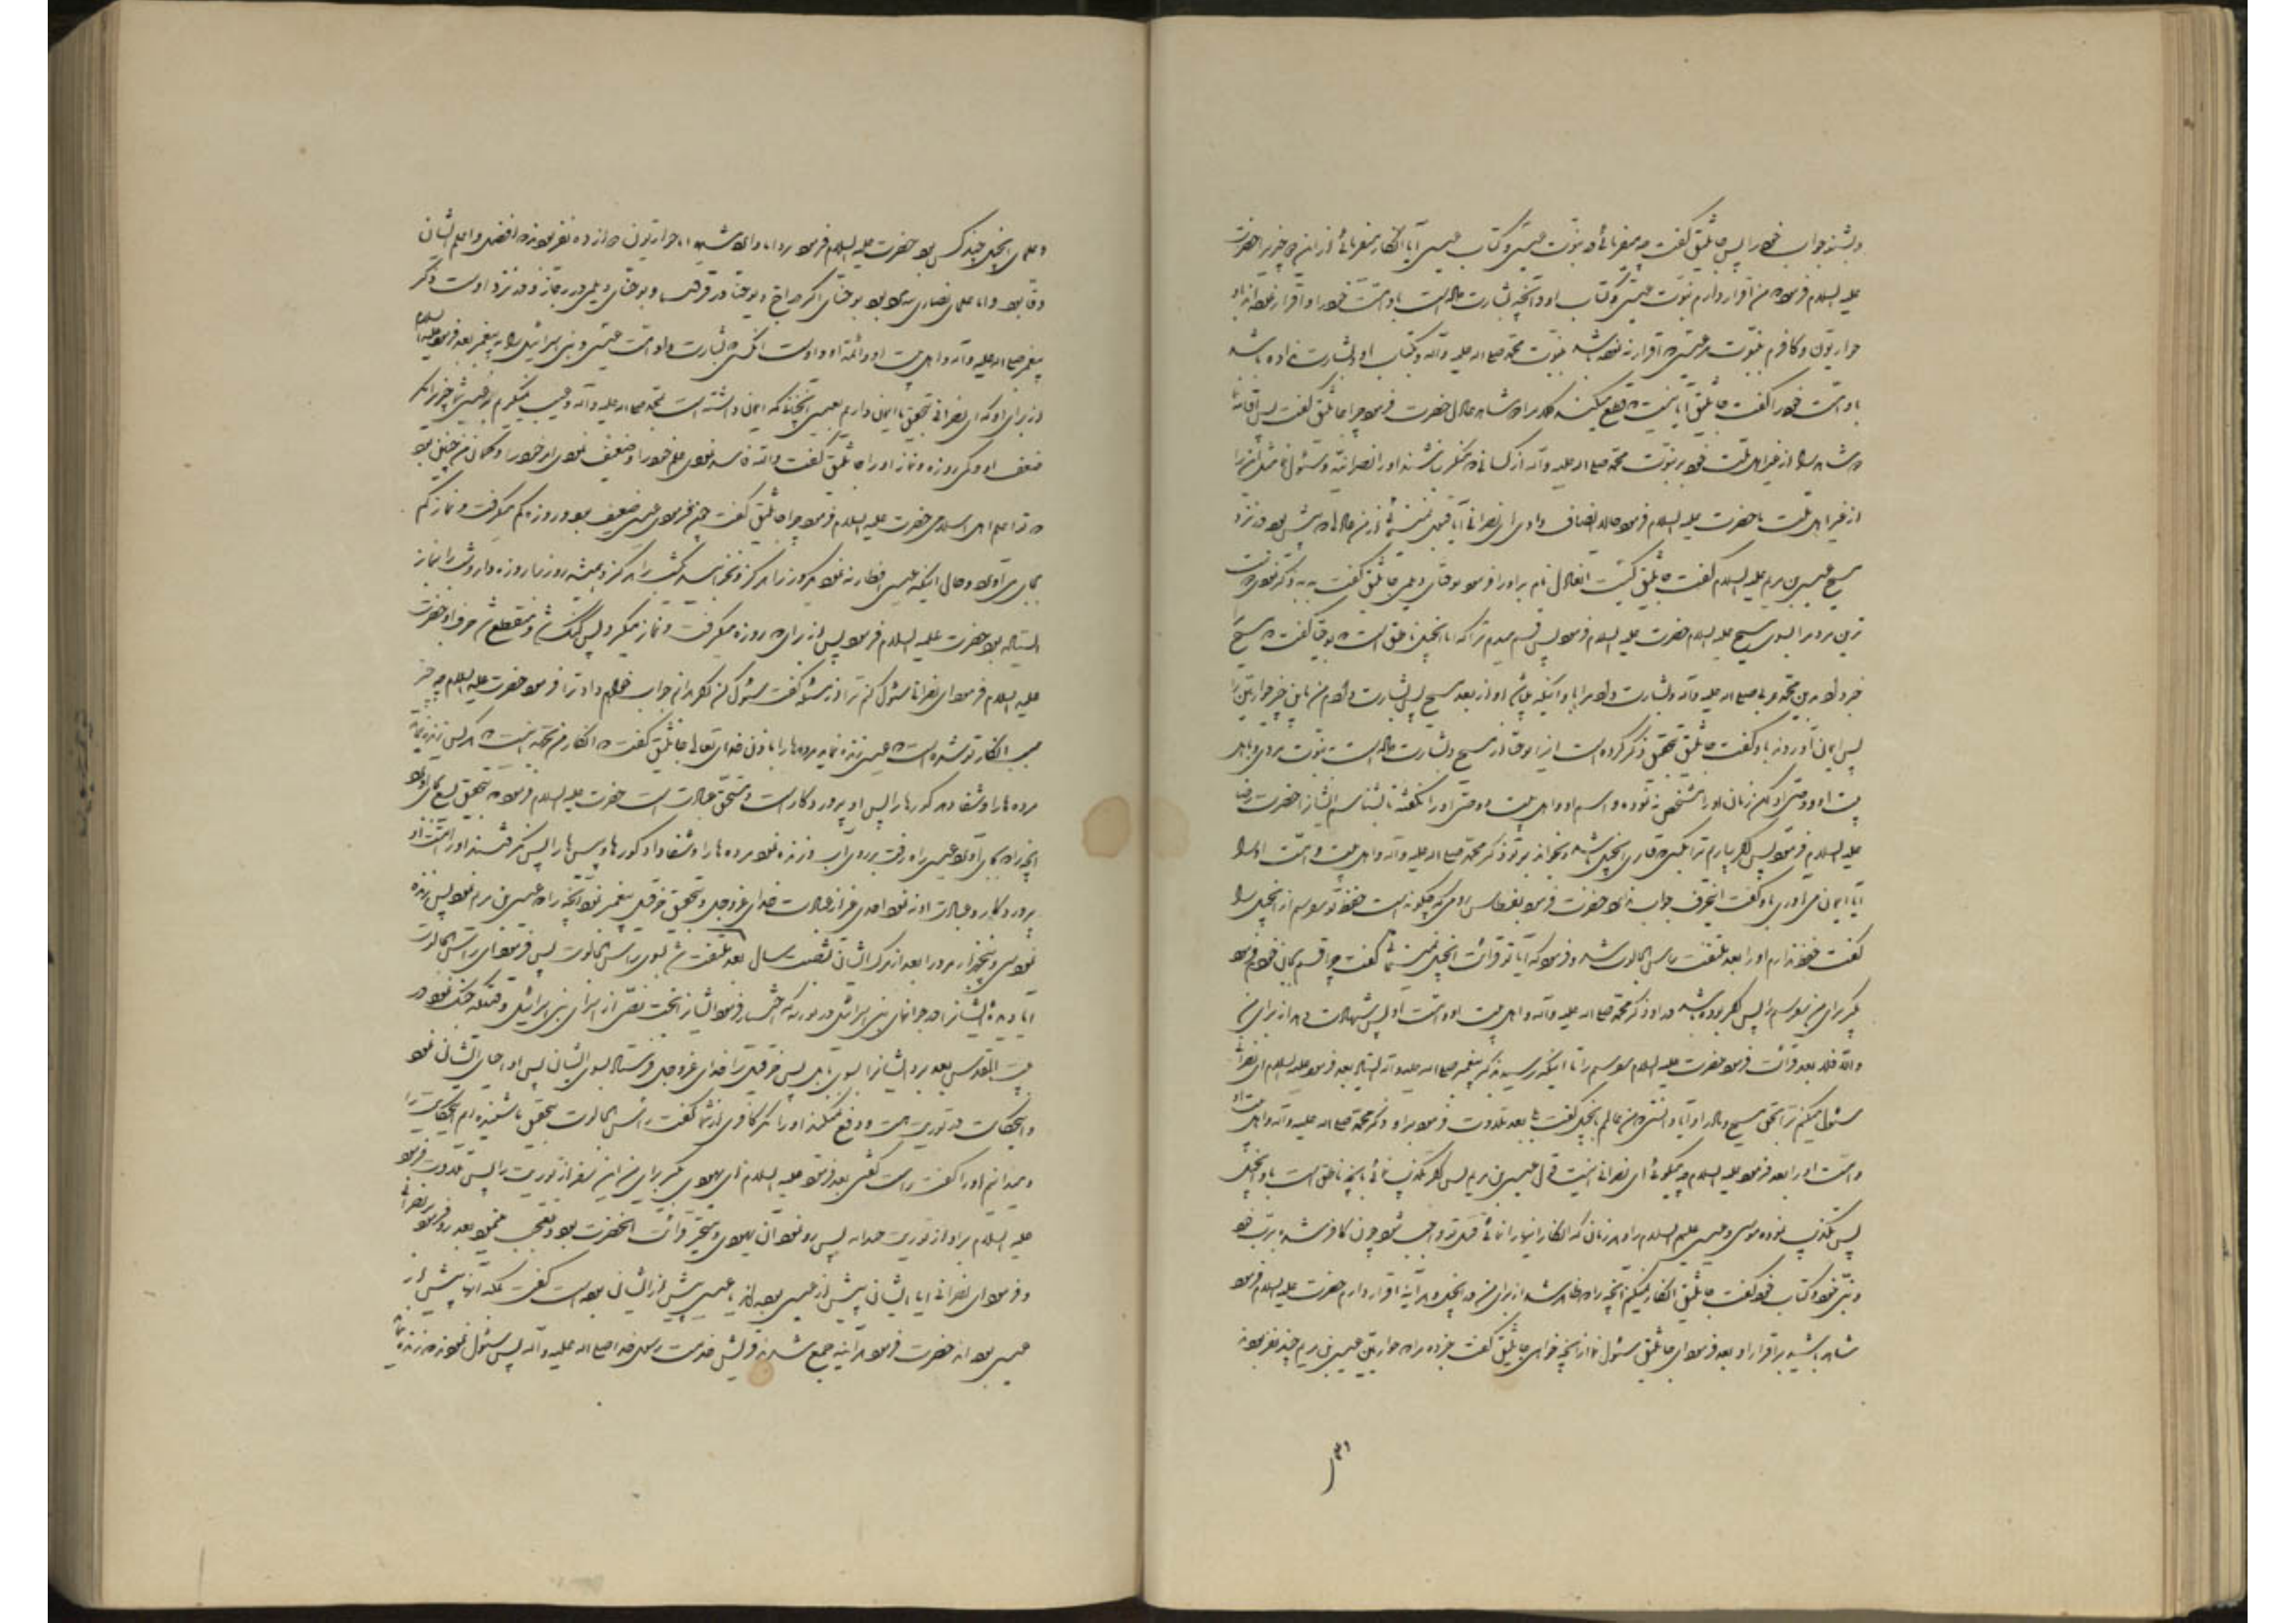 وبشنو جواب خود را پس جاثلیق گفت چه میفرمائی در نبوت عیسی و کتاب عیسی آیا انکار میفرمائی از این دو چیزی را حضرت
علیه السلام فرمود من اقرار دارم بنبوت عیسی و کتاب او و آنچه بشارت داده است باو امت خود را و اقرار نموده‌اند باو
حواریون و کافرم بنبوت هر عیسی که اقرار ننموده باشد بنبوت محمد صلی الله علیه وآله و بکتاب او و بشارت نداده باشد
باو امت خود را گفت جاثلیق آیا نیست که قطع میکند کلام را دو شاهد عادل حضرت فرمود چرا جاثلیق گفت پس اقامه نما
دو شاهد را از غیر اهل ملت خود بر نبوت محمد صلی الله علیه وآله از کسانی که منکر نباشند او را نصرانیه و سئوال نما مثل این را
از غیر اهل ملت ما حضرت علیه السلام فرمود حالا انصاف دادی ای نصرانی آیا قبول نمیکنی از من عادلی که پیش بود در نزد
مسیح عیسی بن مریم علیه السلام گفت جاثلیق کیست این عادل نام ببر او را فرمود یوحنای دیلمی جاثلیق گفت به به ذکر نمودی دوست
ترین مردم را بسوی مسیح علیه السلام حضرت علیه السلام فرمود پس قسم میدهم ترا که آیا انجیل ناطق است که یوحنا گفت که مسیح
خبر داد مرا بدین محمد عربی صلی الله علیه وآله و بشارت داد مرا باو اینکه میآید او از بعد مسیح پس بشارت دادم من باین خبر حواریین را
پس ایمان آوردند باو گفت جاثلیق بتحقیق ذکر کرده است این را یوحنا از مسیح و بشارت داده است بنبوت مردی و باهل
بیت او و وصی او لکن زمان او را مشخص ننموده و اسم او و اهل بیت و وصی او را نگفته تا بشناسم ایشانرا حضرت رضا
علیه السلام فرمود پس اگر بیارم ترا بکسی که قاری انجیل باشد و بخواند بر تو ذکر محمد صلی الله علیه وآله و اهل بیت و امت او را
آیا ایمان می‌آوری باو گفت اینحرف جواب داد حضرت فرمود بنسطاس رومی که چگونه است حفظ تو سوم سفر از انجیل را
گفت حفظ دارم او را بعد ملتفت براس الجالوت شد و فرمود که آیا تو قرائت انجیل نمینمائی گفت چرا قسم بجان خودم فرمود
بگیر برای من سفر سیم را پس اگر بوده باشد در او ذکر محمد صلی الله علیه وآله و اهل بیت او و امت او پس شهادت دهید از برای من
والا فلا بعد قرائت فرمود حضرت علیه السلام سفر سیم را تا اینکه رسید بذکر پیغمبر صلی الله علیه وآله ایستاد بعد فرمود علیه السلام ای نصرانی
سئوال میکنم ترا بحق مسیح و مادر او آیا دانستی که من عالمم بانجیل گفت بلی بعد تلاوت فرمود بر او ذکر محمد صلی الله علیه وآله و اهل بیت او
و امت او را بعد فرمود علیه السلام چه میگوئی ای نصرانی اینست قول عیسی بن مریم پس اگر تکذیب نمائی بآنچه ناطق است باو انجیل
پس تکذیب نموده موسی و عیسی علیهم السلام را و هر زمان که انکار اینها را نمائی قتل تو واجب شود چون کافر شده‌ بربّ خود
و نبی خود و کتاب خود گفت جاثلیق انکار نمیکنم آنچه را که ظاهر شد از برای من در انجیل و هر آینه اقرار دارم حضرت علیه السلام فرمود
شاهد باشید بر اقرار او بعد فرمود ای جاثلیق سئوال نما از آنچه خواهی جاثلیق گفت خبر ده مرا از حواریین عیسی بن مریم چند نفر بودند
و علمای انجیل چند کس بود حضرت علیه السلام فرمود بر دانا وارد شدی اما حواریون دوازده نفر بودند که افضل و اعلم ایشان
لوقا بود و اما علمای نصاری سه مرد بود یوحنای اکبر در اخ و یوحنا در قرقیسا و یوحنای دیلمی در رجاز و در نزد اوست ذکر
پیغمبر صلی الله علیه وآله و اهل بیت او و امت او و اوست انکسی که بشارت داد امت عیسی و بنی اسرائیل را به پیغمبر بعد فرمود علیه السلام
از برای او که ای نصرانی بتحقیق ما ایمان داریم بعیسی آنچنانکه ایمان داشته است بمحمد صلی الله علیه وآله و عیب نمیگیرم بر عیسی شما چیزی مگر
ضعف او و کمی روزه و نماز او را جاثلیق گفت والله فاسد نمودی علم خود را و ضعیف نمودی امر خود را و گمان من چنین بود
که تو اعلم اهل اسلامی حضرت علیه السلام فرمود چرا جاثلیق گفت چون فرمودی عیسی ضعیف بود و روزه کم میگرفت و نماز کم
بجای می‌آورد و حال اینکه عیسی افطار ننمود هر گز روز را هرگز و نخوابید شب را هرگز و همیشه روزها روزه دار و شب را بنماز
ایستاده بود حضرت علیه السلام فرمود پس از برای که روزه میگرفت و نماز میکرد پس گنگ شد و منقطع شد حرف او حضرت
علیه السلام فرمود ای نصرانی سئوال کنم ترا از مسئله گفت سئوال کن اگر بدانم جواب خواهم داد ترا فرمود حضرت علیه السلام چه چیز
سبب انکار تو شده است که عیسی زنده نماید مرده‌ها را باذن خدای تعالی جاثلیق گفت که انکار من بجهة اینست که هر کس زنده نماید
مرده‌ها را و شفا دهد کورها را پس او پروردگار است و مستحق عبادت است حضرت علیه السلام فرمود که بتحقیق یسع بجای آورد
آنچه را که بجای آورد عیسی راه رفت بر روی آب و زنده نمود مرده‌ها را و شفا داد کورها و پیس‌ها را پس نگرفتند او را امت او
پروردگار و عبادت او ننمود احدی غیر از عبادت خدای عز و جل و بتحقیق حزقیل پیغمبر نمود آنچه را که عیسی بن مریم نمود پس زنده
نمود سی و پنج هزار مرد را بعد از مرگ ایشان بشصت سال بعد ملتفت شد بسوی راس الجالوت پس فرمود ای راس الجالوت
آیا دیده‌ ایشانرا در جوانان بنی اسرائیل در توریة که اختیار فرمود ایشانرا بخت نصر از اسرای بنی اسرائیل وقتیکه جنگ نمود در
بیت المقدس بعد برد ایشانرا بسوی بابل پس حزقیل را خدای عز و جل فرستاد بسوی ایشان پس او احیای ایشان نمود
و اینحکایت در توریت هست و دفع نمیکند او را مگر کافری از شما گفت راس الجالوت بتحقیق ما شنیده‌ایم اینحکایت را
و میدانیم او را گفت راست گفتی بعد فرمود علیه السلام ای یهودی بگیر برای من این سفر از توریت را پس تلاوت فرمود
علیه السلام بر او از توریت چند آیه پس رو نمود آن یهودی و متحیر قرائت آنحضرت بود و تعجب مینمود بعد رو فرمود بر نصرانی
و فرمود ای نصرانی آیا ایشان پیش از عیسی بوده‌اند یا عیسی پیش از ایشان بوده است گفت بلکه آنها پیش از
عیسی بوده‌اند حضرت فرمود هر آینه جمع شدند قریش خدمت رسول خدا صلی الله علیه وآله پس سئوال نمودند که زنده نماید